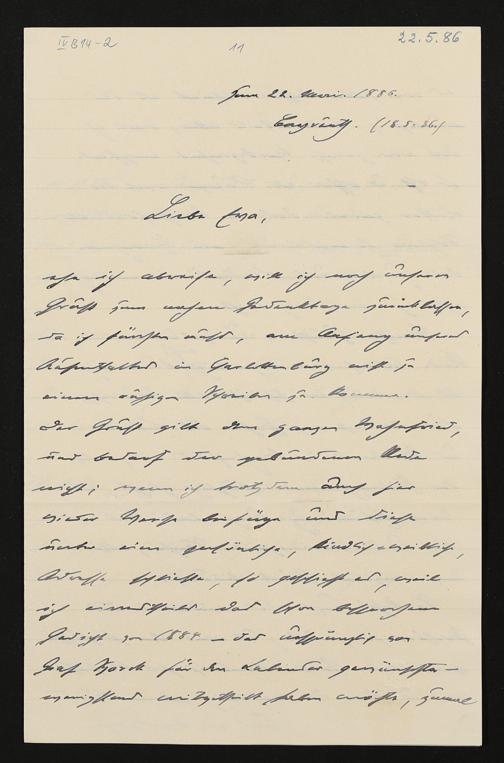 IV B 14-2
11
22.5.86
Zum 22. Mai. 1886.
Bayreuth. (18.5.86.)
Liebe Eva,
ehe ich abreise, will ich noch einen
Gruß zum nahen Gedenktage zurücklassen,
da ich fürchten muß, am Anfang unseres
Aufenthaltes in Charlottenburg nicht zu
einem ruhigen Schreiben zu kommen.
Der Gruß gilt dem ganzen Wahnfried,
und bedarf der gebundenen Rede
nicht; wenn ich trotzdem auch hier
wieder Verse beifüge und diese
unter eine persönliche, kindlich weibliche,
Adresse schließe, so geschieht es, weil
ich einestheils das schon
Gedicht von 1884 – das ursprünglich von
Graf für den Kalender gewünschte –
wenigstens mitgetheilt haben möchte, zumal